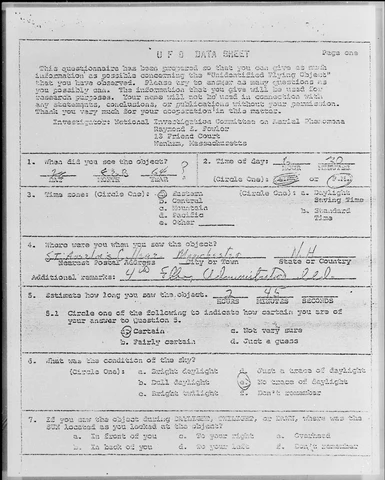 U F O DATA SHEET
Page one
This questionnaire has been prepared so that you can give as much
information as possible concerning the "Unidentified Flying Object"
that you have observed. Please try to answer as many questions as
you possibly can. The information that you give will be used for
research purposes. Your name will not be used in connection with
any statements, conclusions, or publications without your permission.
Thank you very much for your cooperation in this matter.
Investigator: National Investigation Committee on Aerial Phenomena
Raymond E. Fowler
13 Friend Court
Wenham, Massachusetts
1. When did you see the object?
FEB 64 ?
DAY MONTH YEAR
2. Time of day:
HOUR MINUTES
(Circle One): A.M. or P.M.
3. Time zone: (Circle One): a. Eastern
b. Central
c. Mountain
d. Pacific
e. Other
(Circle One): a. Daylight
Saving Time
b. Standard
Time
4. Where were you when you saw the object?
Manchester N H
Nearest Postal Address City or Town State or Country
Additional remarks: 4th Floor, Administration
5. Estimate how long you saw the object. 2 45
HOURS MINUTES SECONDS
5.1 Circle one of the following to indicate how certain you are of
your answer to Question 5.
a. Certain c. Not very sure
b. Fairly certain d. Just a guess
6. What was the condition of the sky?
(Circle One): a. Bright daylight d. Just a trace of daylight
b. Dull daylight e. No trace of daylight
c. Bright twilight f. Don't remember
7. If you saw the object during DAYLIGHT, TWILIGHT, or DAWN, where was the
SUN located as you looked at the object?
a. In front of you c. To your right e. Overhead
b. In back of you d. To your left f. Don't remember